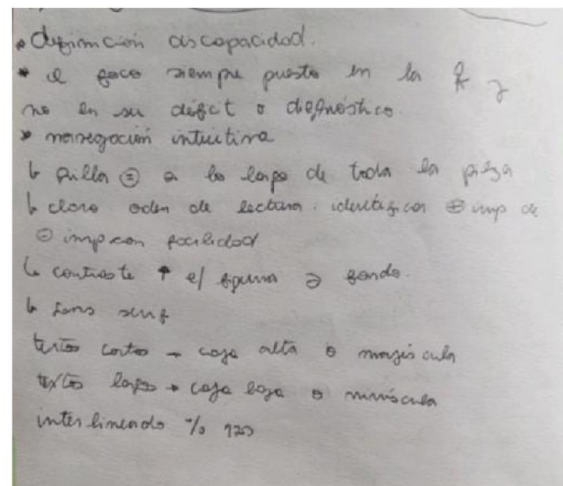 • definición discapacidad.
• el foco siempre puesto en la y
no en su déficit o diagnóstico.
• navegación intuitiva
↳ grilla ⊜ a lo largo de toda la pieza
↳ claro orden de lectura. identificar ⊕ imp de
⊖ imp con facilidad
↳ contraste ↑ e/ figura y fondo.
↳ sans serif
textos cortos → caja alta o mayúscula
textos largos → caja baja o minúscula
interlineado % 120